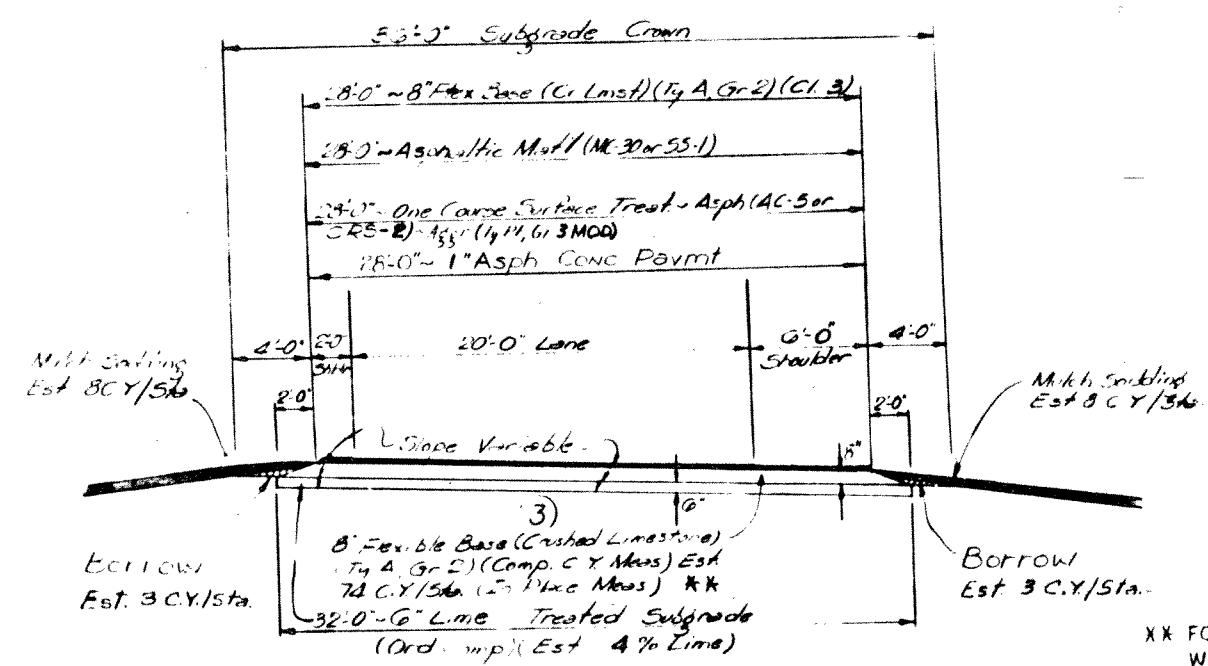 36'-0" Subgrade Crown
28'-0" ~ 8" Flex Base (Cr Lmst) (Ty A, Gr 2) (Cl. 3)
28'-0" ~ Asphaltic Mat'l (MC-30 or SS-1)
28'-0" ~ One Course Surface Treat ~ Asph (AC-5 or
CRS-2) ~ Aggr (Ty PI, Gr 3 MOD)
28'-0" ~ 1" Asph Conc Pavmt
4'-0"
2'-0"
Shldr
20'-0" Lane
6'-0"
Shoulder
4'-0"
Mulch Sodding
Est 8 C Y/Sta
2'-0"
2'-0"
Mulch Sodding
Est 8 C Y/Sta.
Slope Variable
8"
6"
3)
8" Flexible Base (Crushed Limestone)
(Ty A, Gr 2) (Comp. C Y Meas) Est
74 C.Y./Sta. (In Place Meas) **
Borrow
Est. 3 C.Y./Sta.
Borrow
Est. 3 C.Y./Sta.
32'-0" ~ 6" Lime Treated Subgrade
(Ord. Comp) (Est 4% Lime)
** FO
W